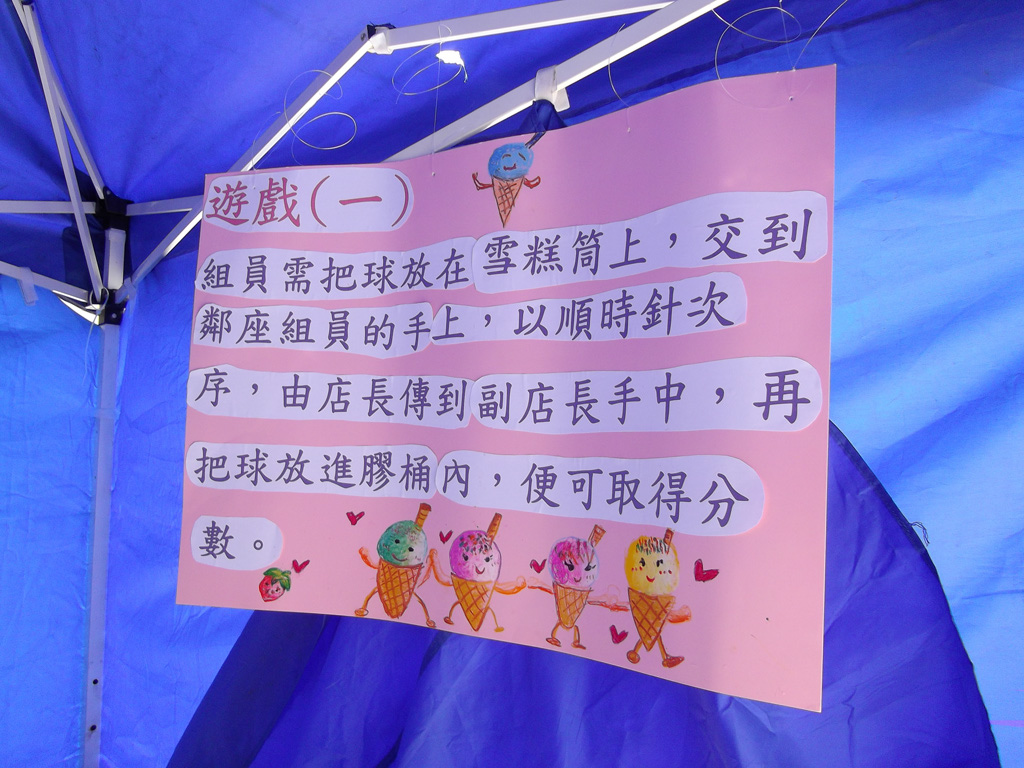 遊戲(一)
組員需把球放在雪糕筒上，交到
鄰座組員的手上，以順時針次
序，由店長傳到副店長手中，再
把球放進膠桶內，便可取得分
數。